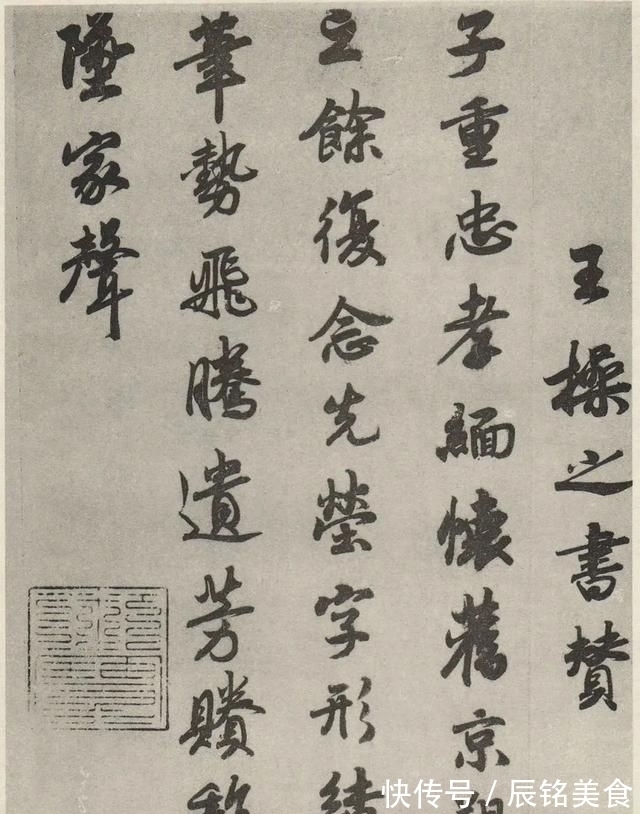 王操之書贊
子重忠孝緬懷舊京
之餘復念先塋字形結
筆勢飛騰遺芳賸
墜家聲
快传号/辰铭美食